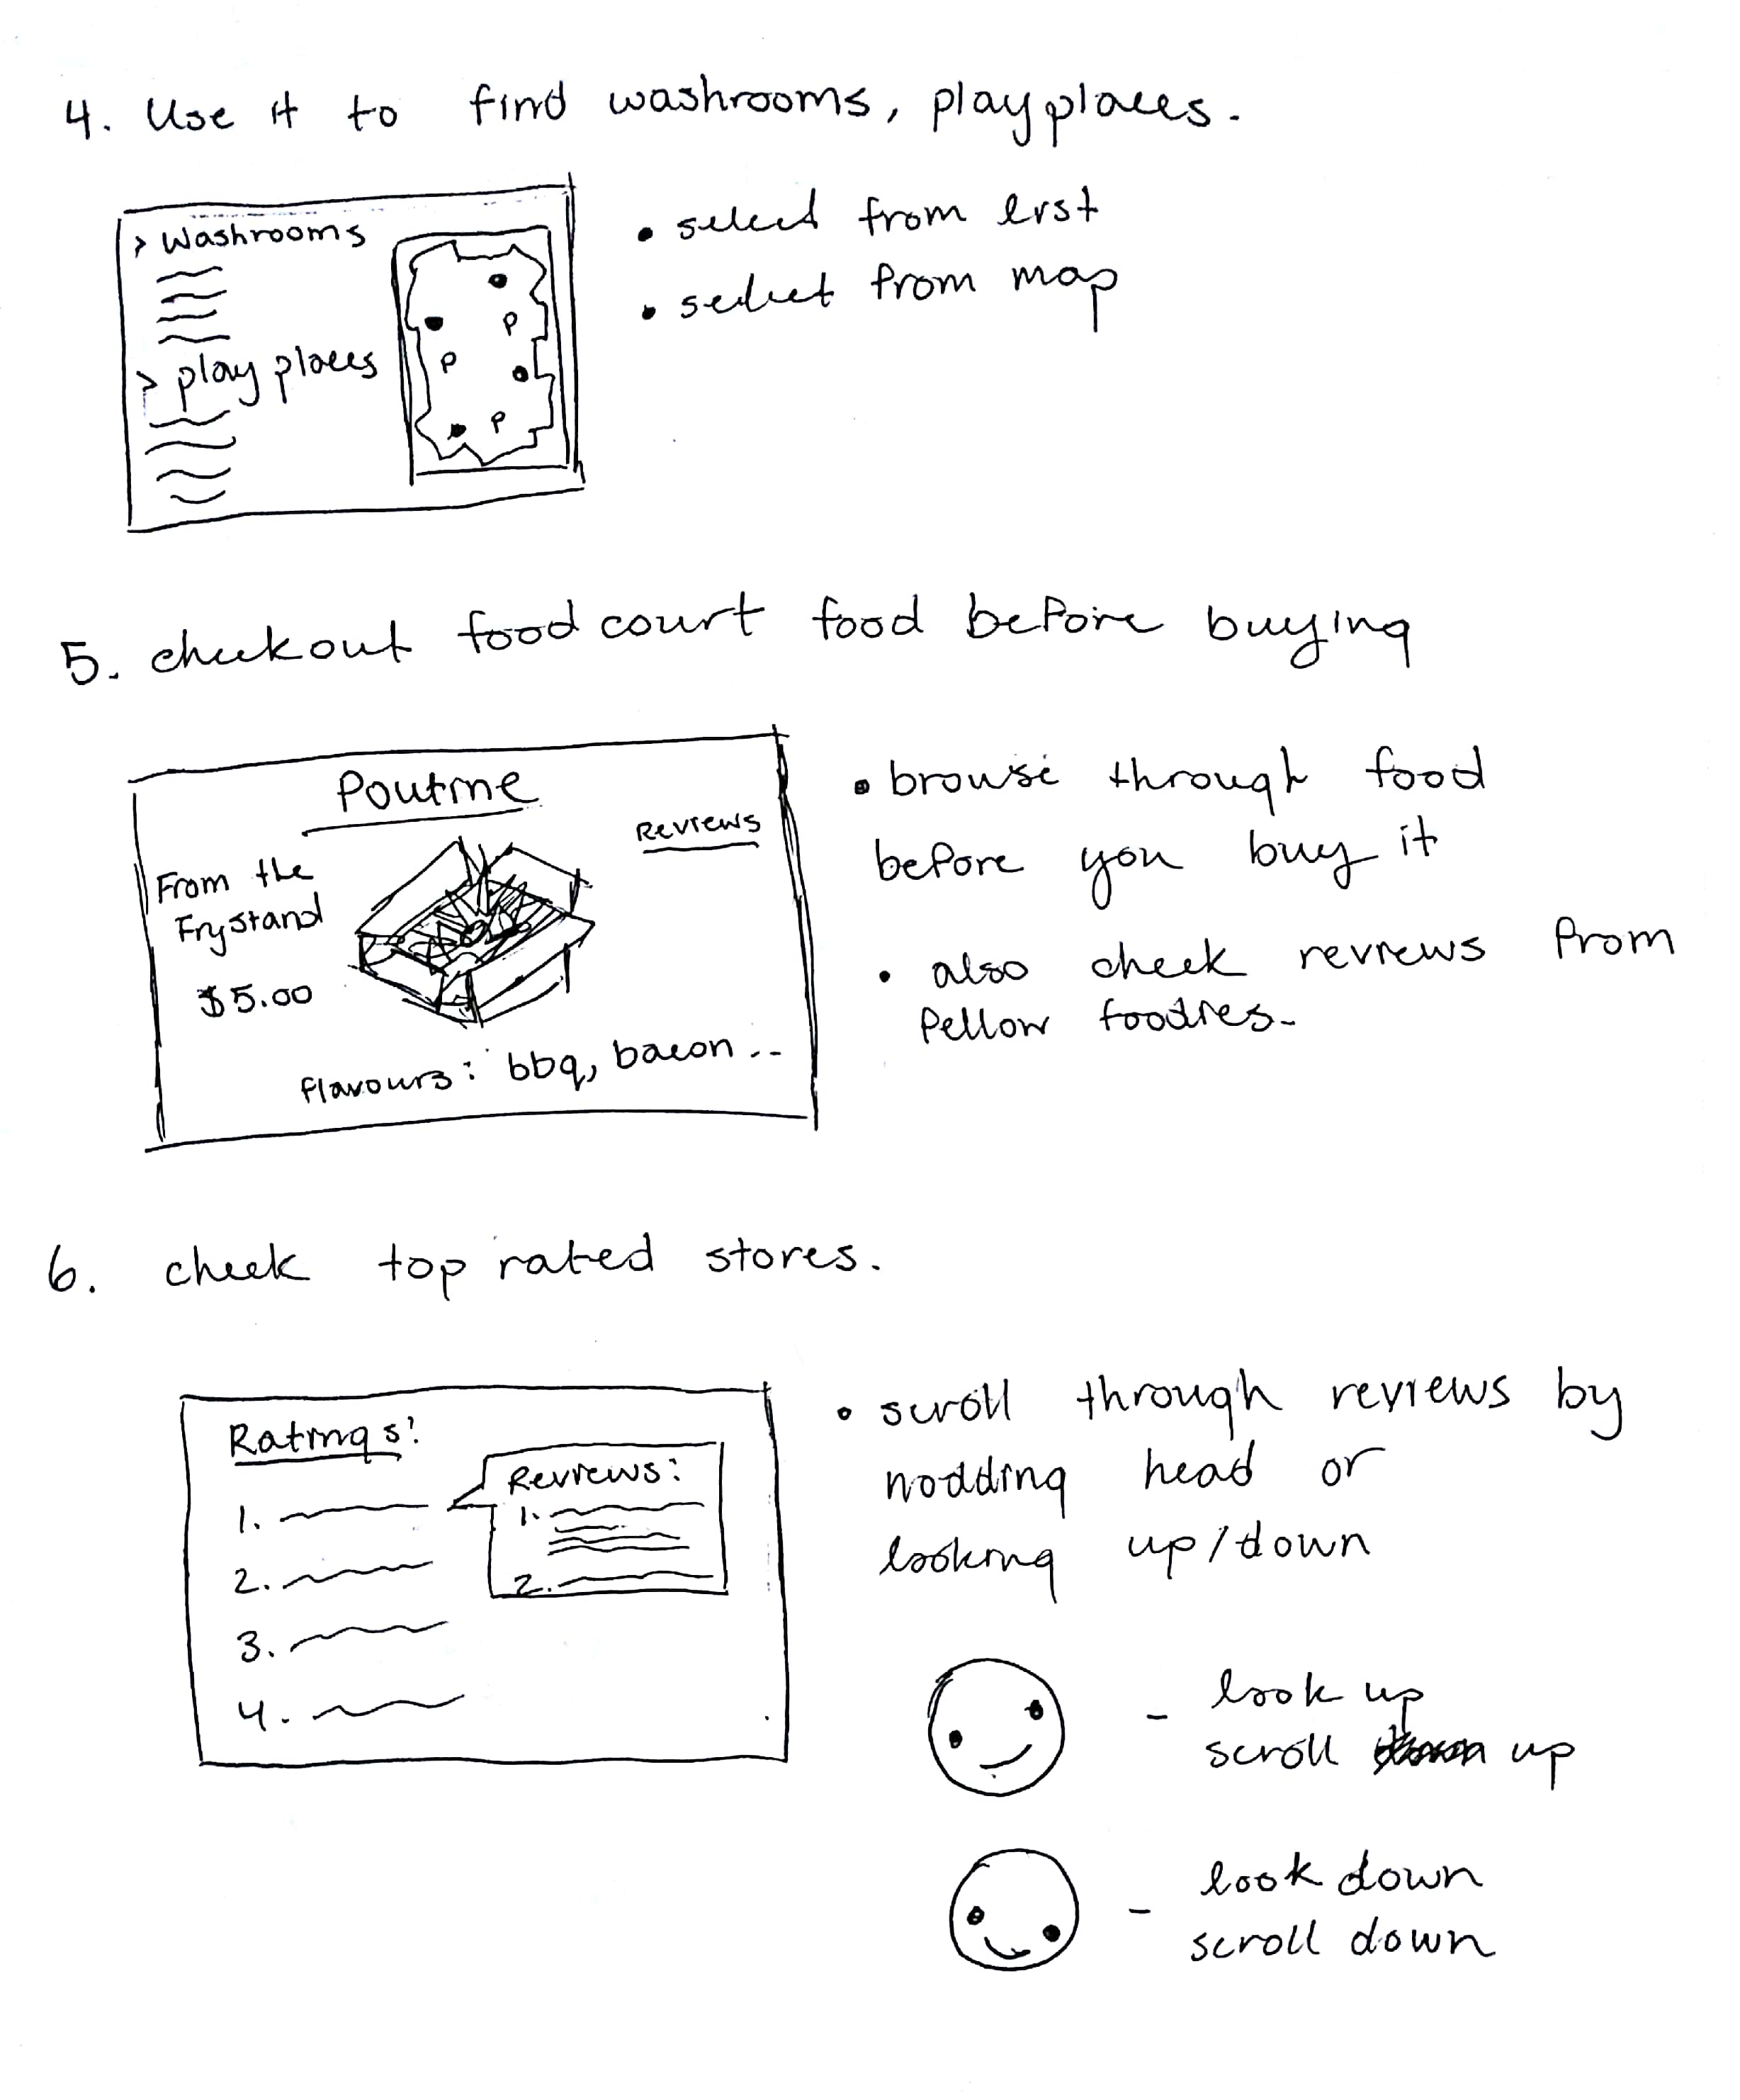 4. Use it to find washrooms, play places.
> Washrooms
> play places
P
P
P
• select from list
• select from map
5. checkout food court food before buying
Poutine
Reviews
From the
Frystand
$5.00
flavours: bbq, bacon ..
• browse through food
before you buy it
• also check reviews from
fellow foodies.
6. check top rated stores.
Ratings:
1.
2.
3.
4.
Reviews:
1.
2.
• scroll through reviews by
nodding head or
looking up/down
- look up
scroll up
- look down
scroll down